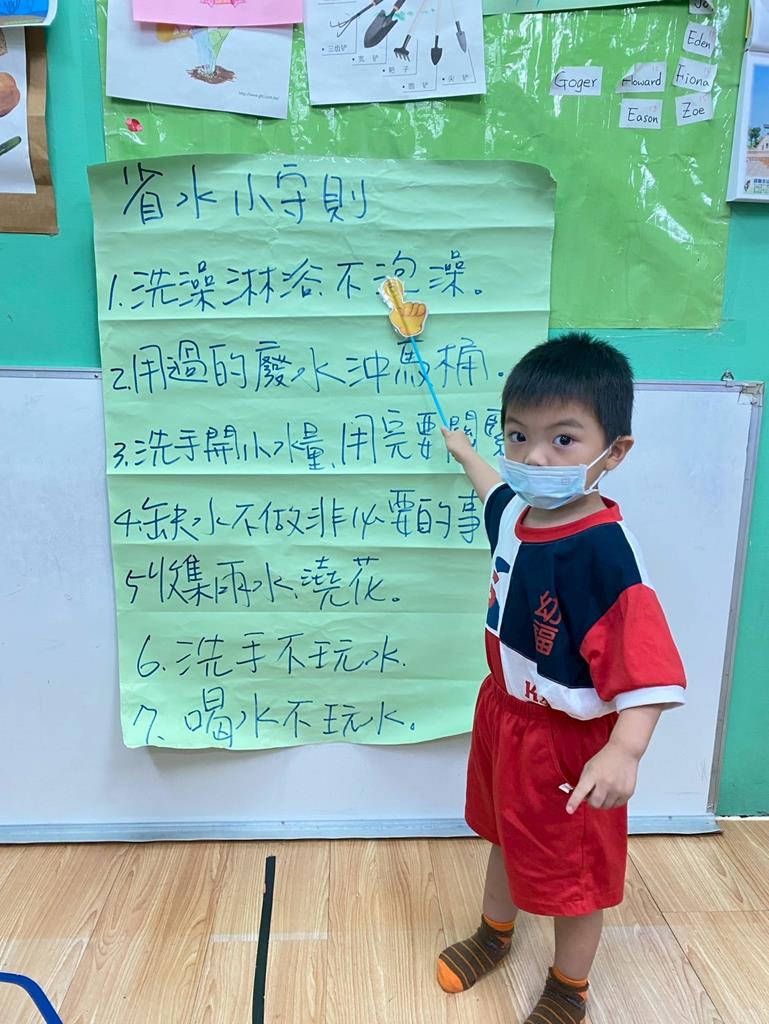 ・三齿铲
・宽铲 ・耙子
・圆铲 ・尖铲
Eden
Goger Howard Fiona
Eason Zoe
省水小守則
1.洗澡淋浴不泡澡。
2.用過的廢水沖馬桶.
3.洗手開小水量,用完要關緊
4.缺水不做非必要的事
5收集雨水,澆花。
6.洗手不玩水.
7.喝水不玩水。
幼福